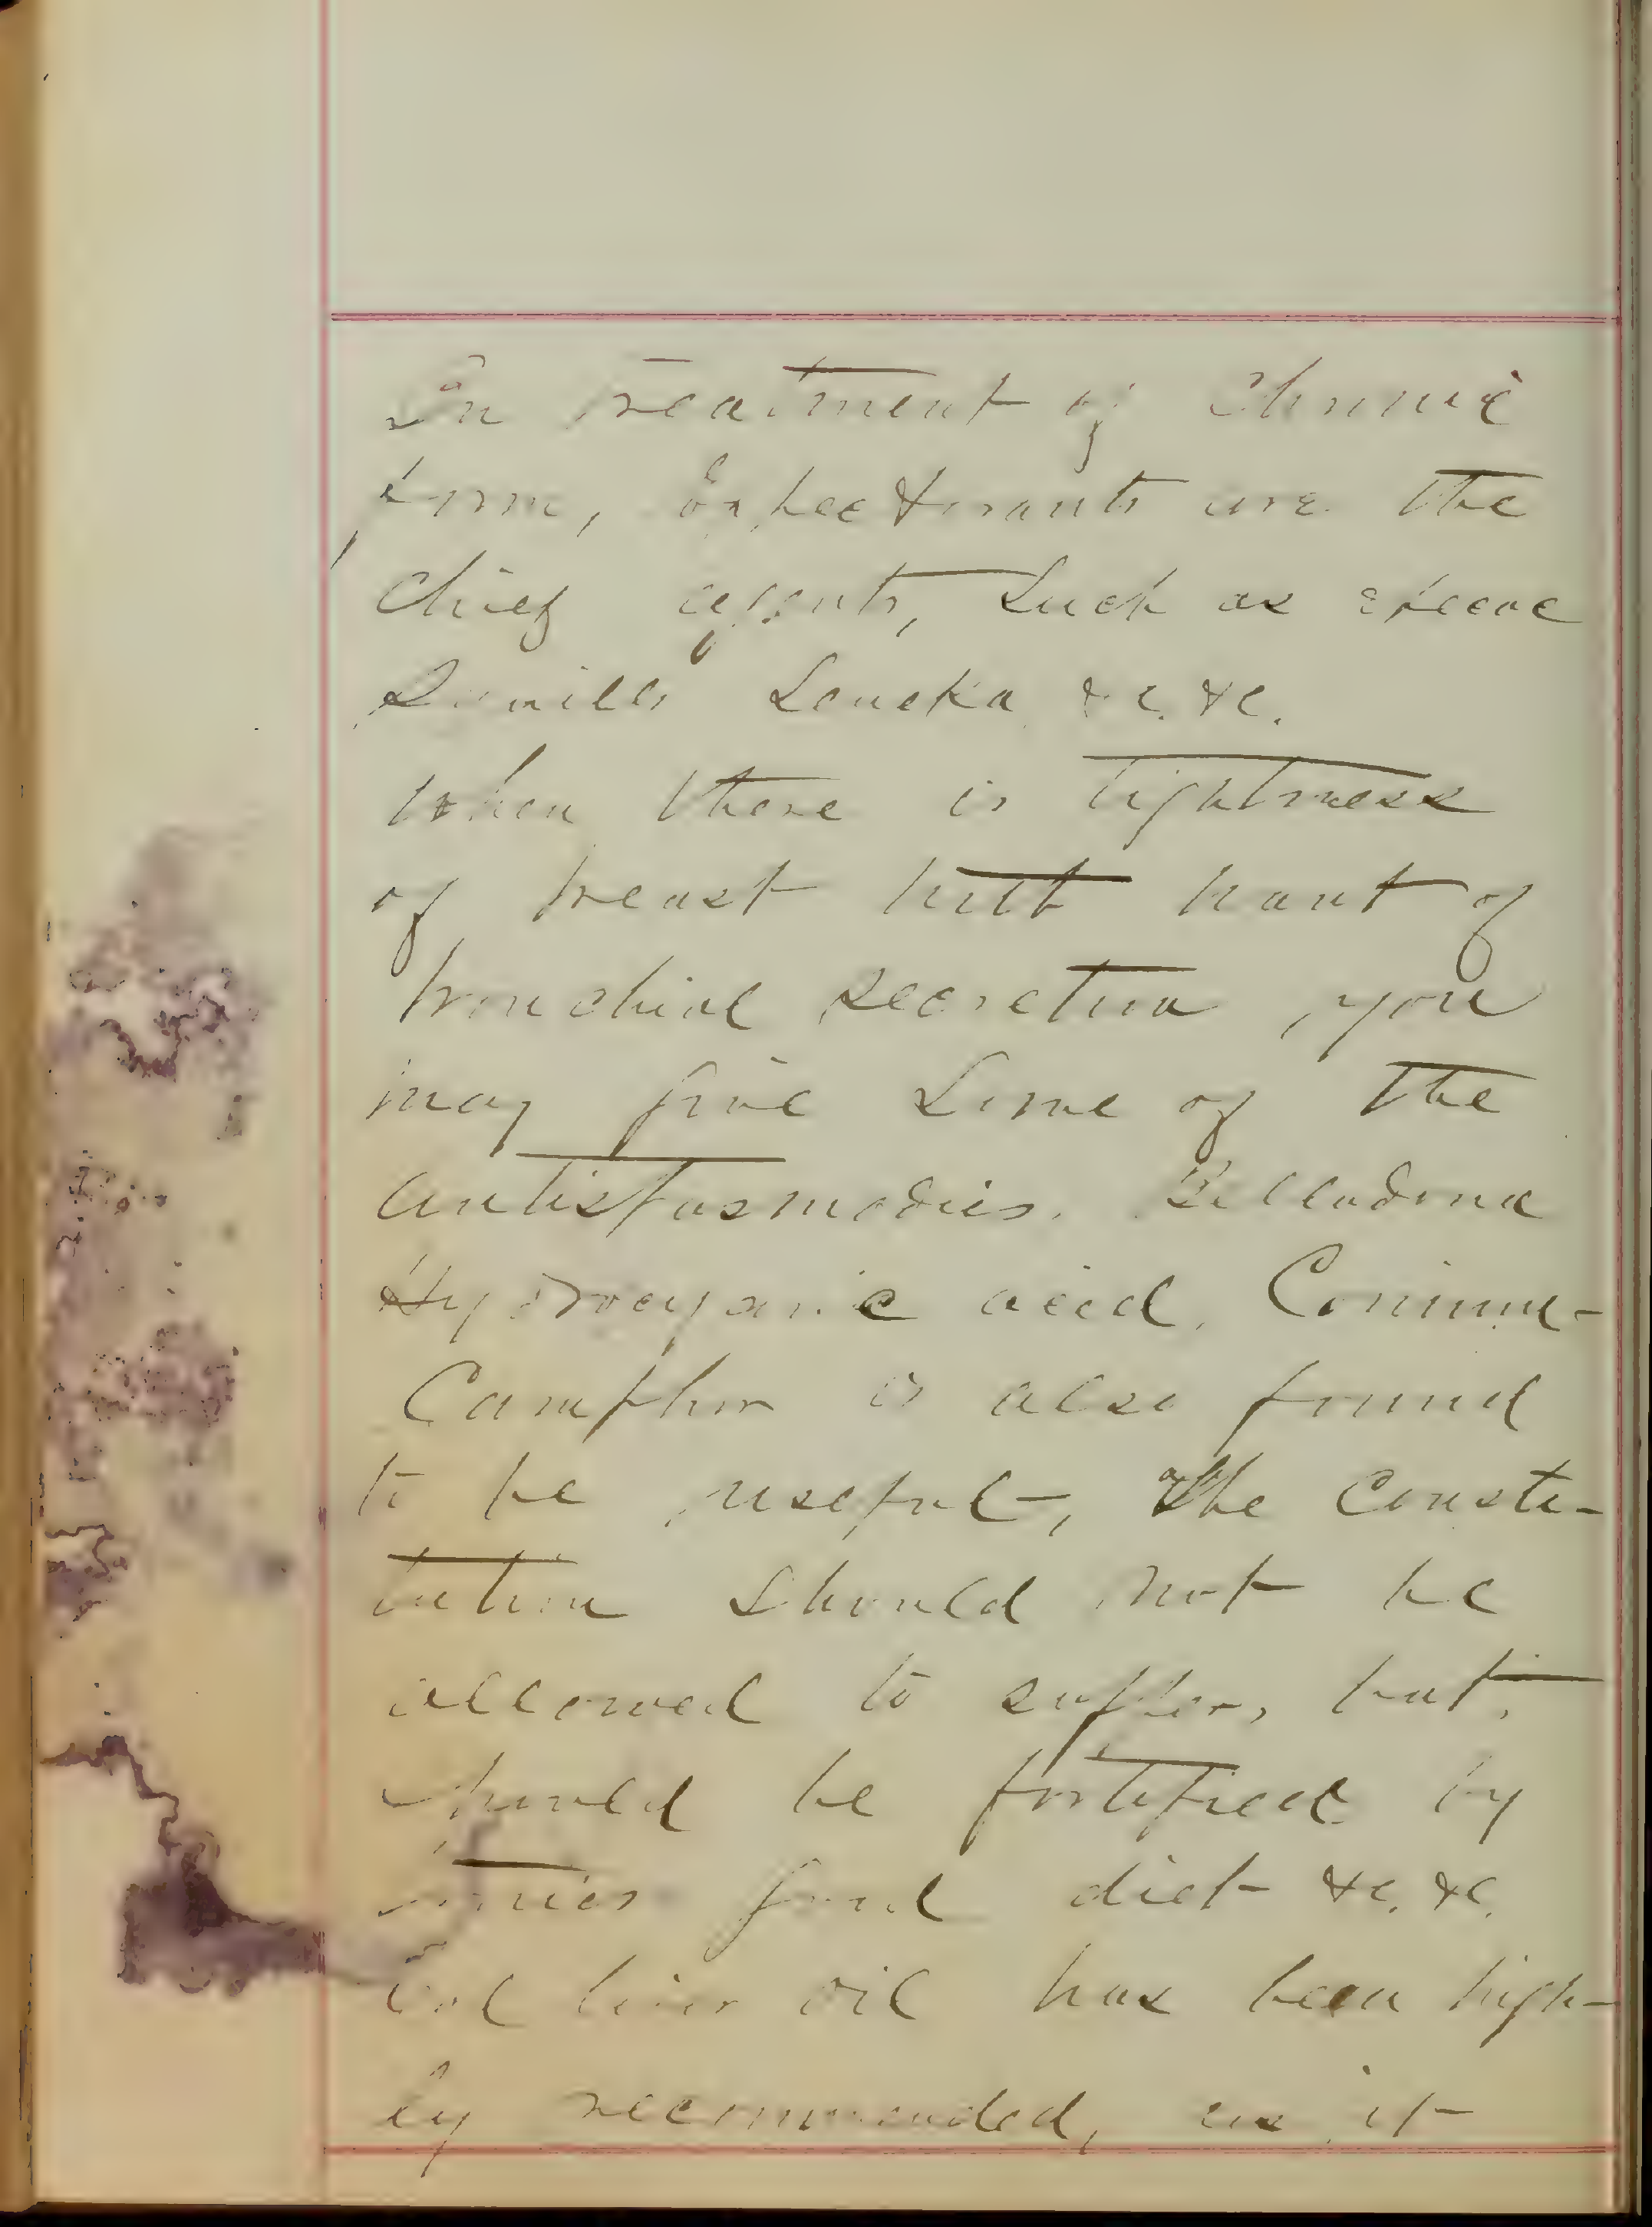 In treatment of Chronic
form, Expectorants are the
chief agents, Such as ipecac
Squills Seneka &c. &c.
When there is tightness
of breast with want of
bronchial secretion, you
may give Some of the
antispasmodics. Belladona
Hydrocyanic acid, Conium-
Camphor is also found
to be useful-, The Consti-
tution Should not be
allowed to suffer, but,
should be fortified by
tonics good diet &c. &c.
Cod liver oil has been high-
ly recommended, as it